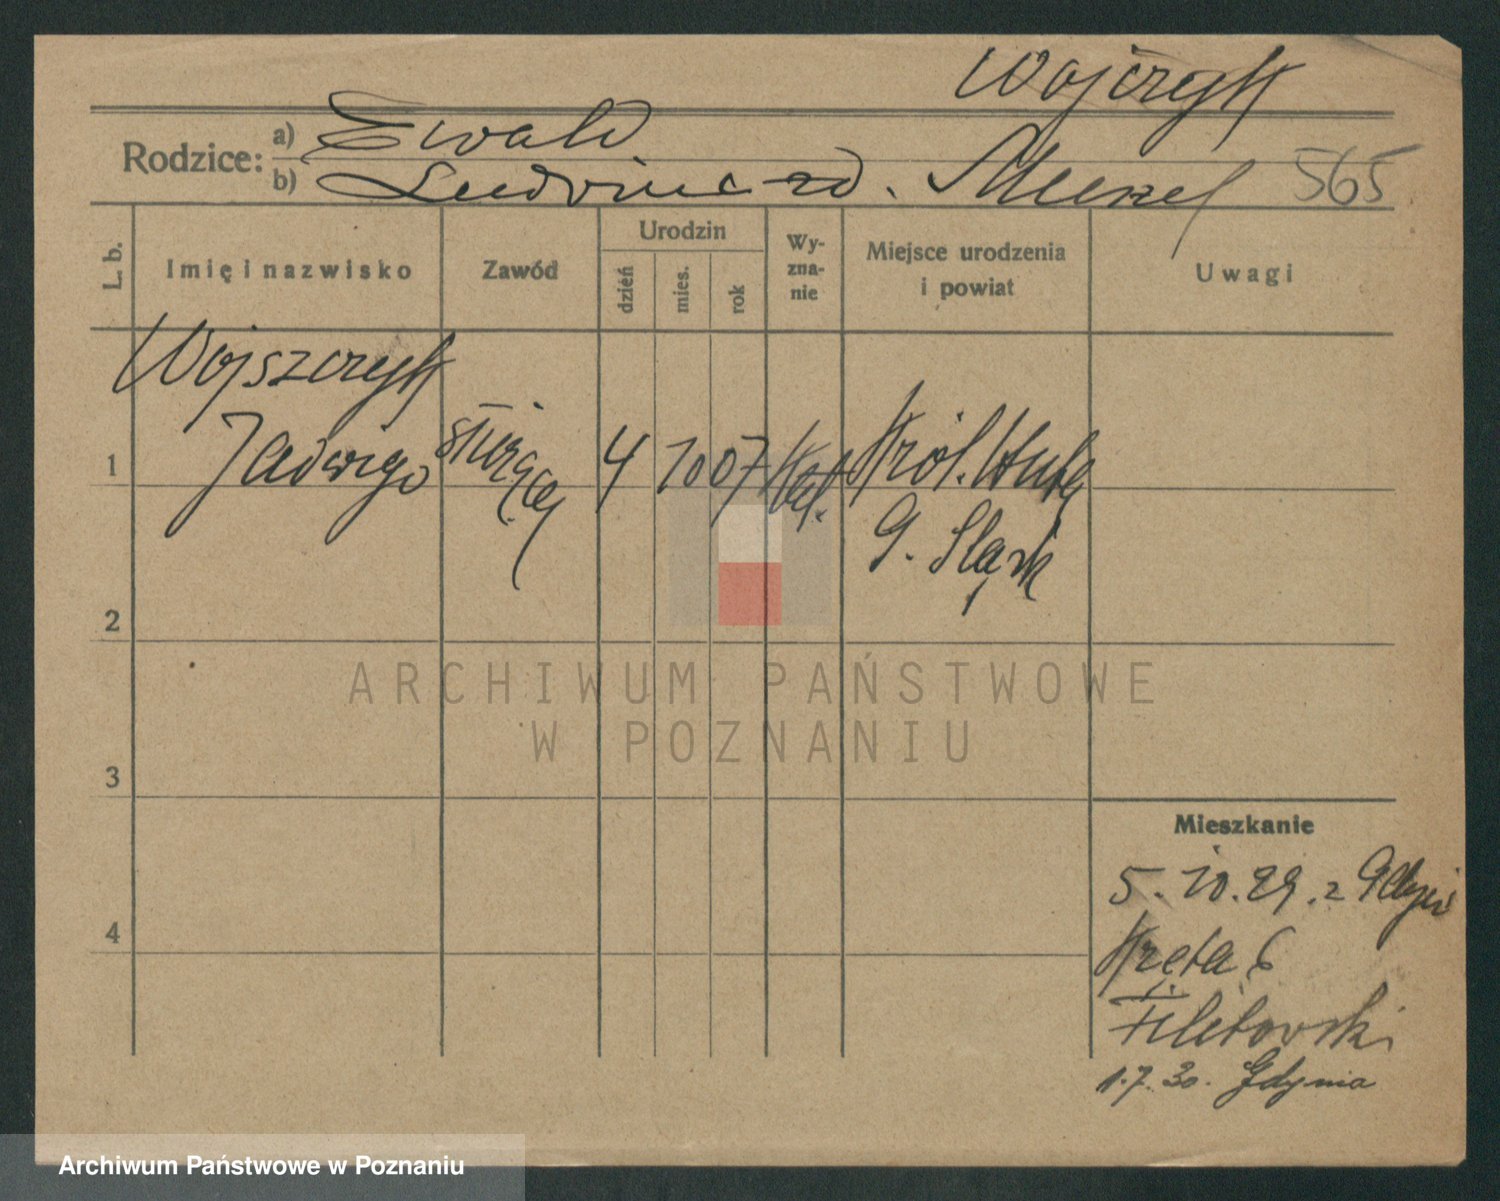 Wojczyk
Rodzice:
a) Ewald
b) Ludwina zd. Muszel
565
L. b.
Imię i nazwisko
Zawód
Urodzin
dzień
mies.
rok
Wy-
zna-
nie
Miejsce urodzenia
i powiat
Uwagi
Wojszczyk
1 Jadwiga służąca 4 10 07 Kat. Król. Huta
G. Śląsk
2
3
4
Mieszkanie
5. 10. 29. z Gdyni
Kręta 6
1. 7. 30. Gdynia
ARCHIWUM PAŃSTWOWE
W POZNANIU
Archiwum Państwowe w Poznaniu